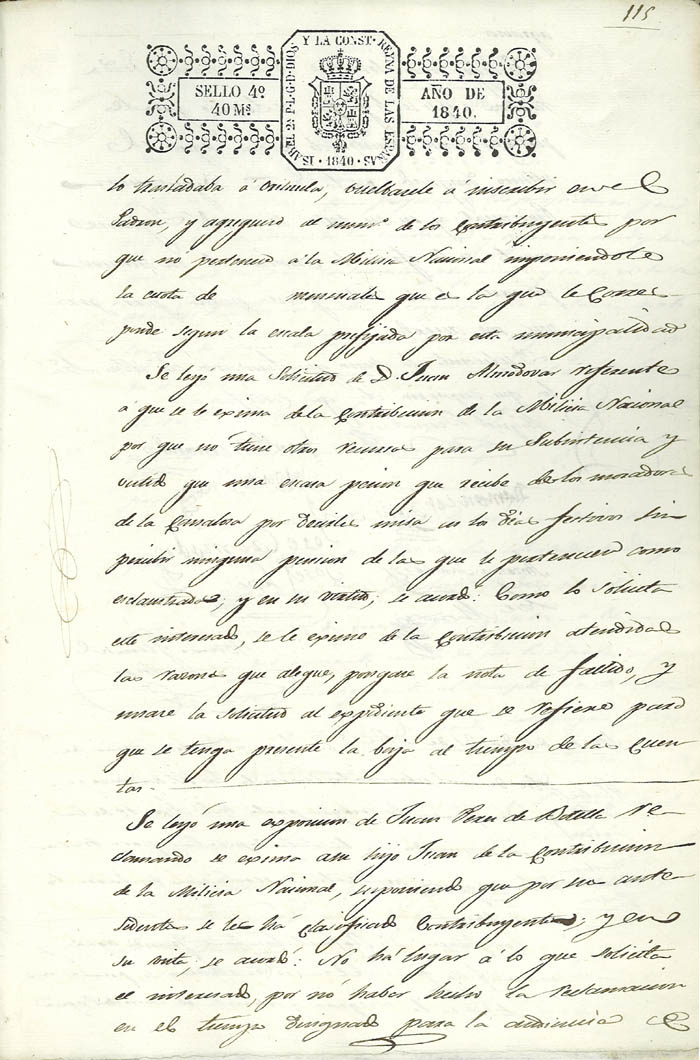 115
ISABEL 2ª P.L.G.D.DIOS Y LA CONST. REYNA DE LAS ESPAÑAS · 1840 ·
SELLO 4º
40 Mª
AÑO DE
1840.
lo trasladaba á Orihuela, vuelbasele á inscribir en el
Padron, y agreguese al num.º de los contribuyentes por
que no pertenece á la Milicia Nacional imponiendole
la cuota de mensuales que es la que le corres-
ponde segun la escala prefijada por esta municipalidad
Se leyó una Solicitud de D. Juan Almodovar referente
á que se le exima de la contribucion de la Milicia Nacional
por que no tiene otros recursos para su Subsistencia y
que una escasa pension que recibe de los moradores
de la por decirles misa en los Dias festivos sin
percibir ninguna pension de las que le pertenecen como
esclaustrado; y en su virtud; se acordó: Como lo solicita
este interesado, se le exime de la contribucion atendidas
las razones que alegue, pongase la nota de fallido, y
unase la solicitud al expediente que se refiere para
que se tenga presente la baja al tiempo de las cuen-
tas.
Se leyó una exposicion de Juan Perez de Botella re-
clamando se exima a su hijo Juan de la contribucion
de la Milicia Nacional, suponiendo que por sus ante-
sidentes se les há clasificado contribuyentes; y en
su virtd, se acordó: No há lugar á lo que solicita
el interesado, por nó haber hecho la reclamacion
en el tiempo designado para la audiencia